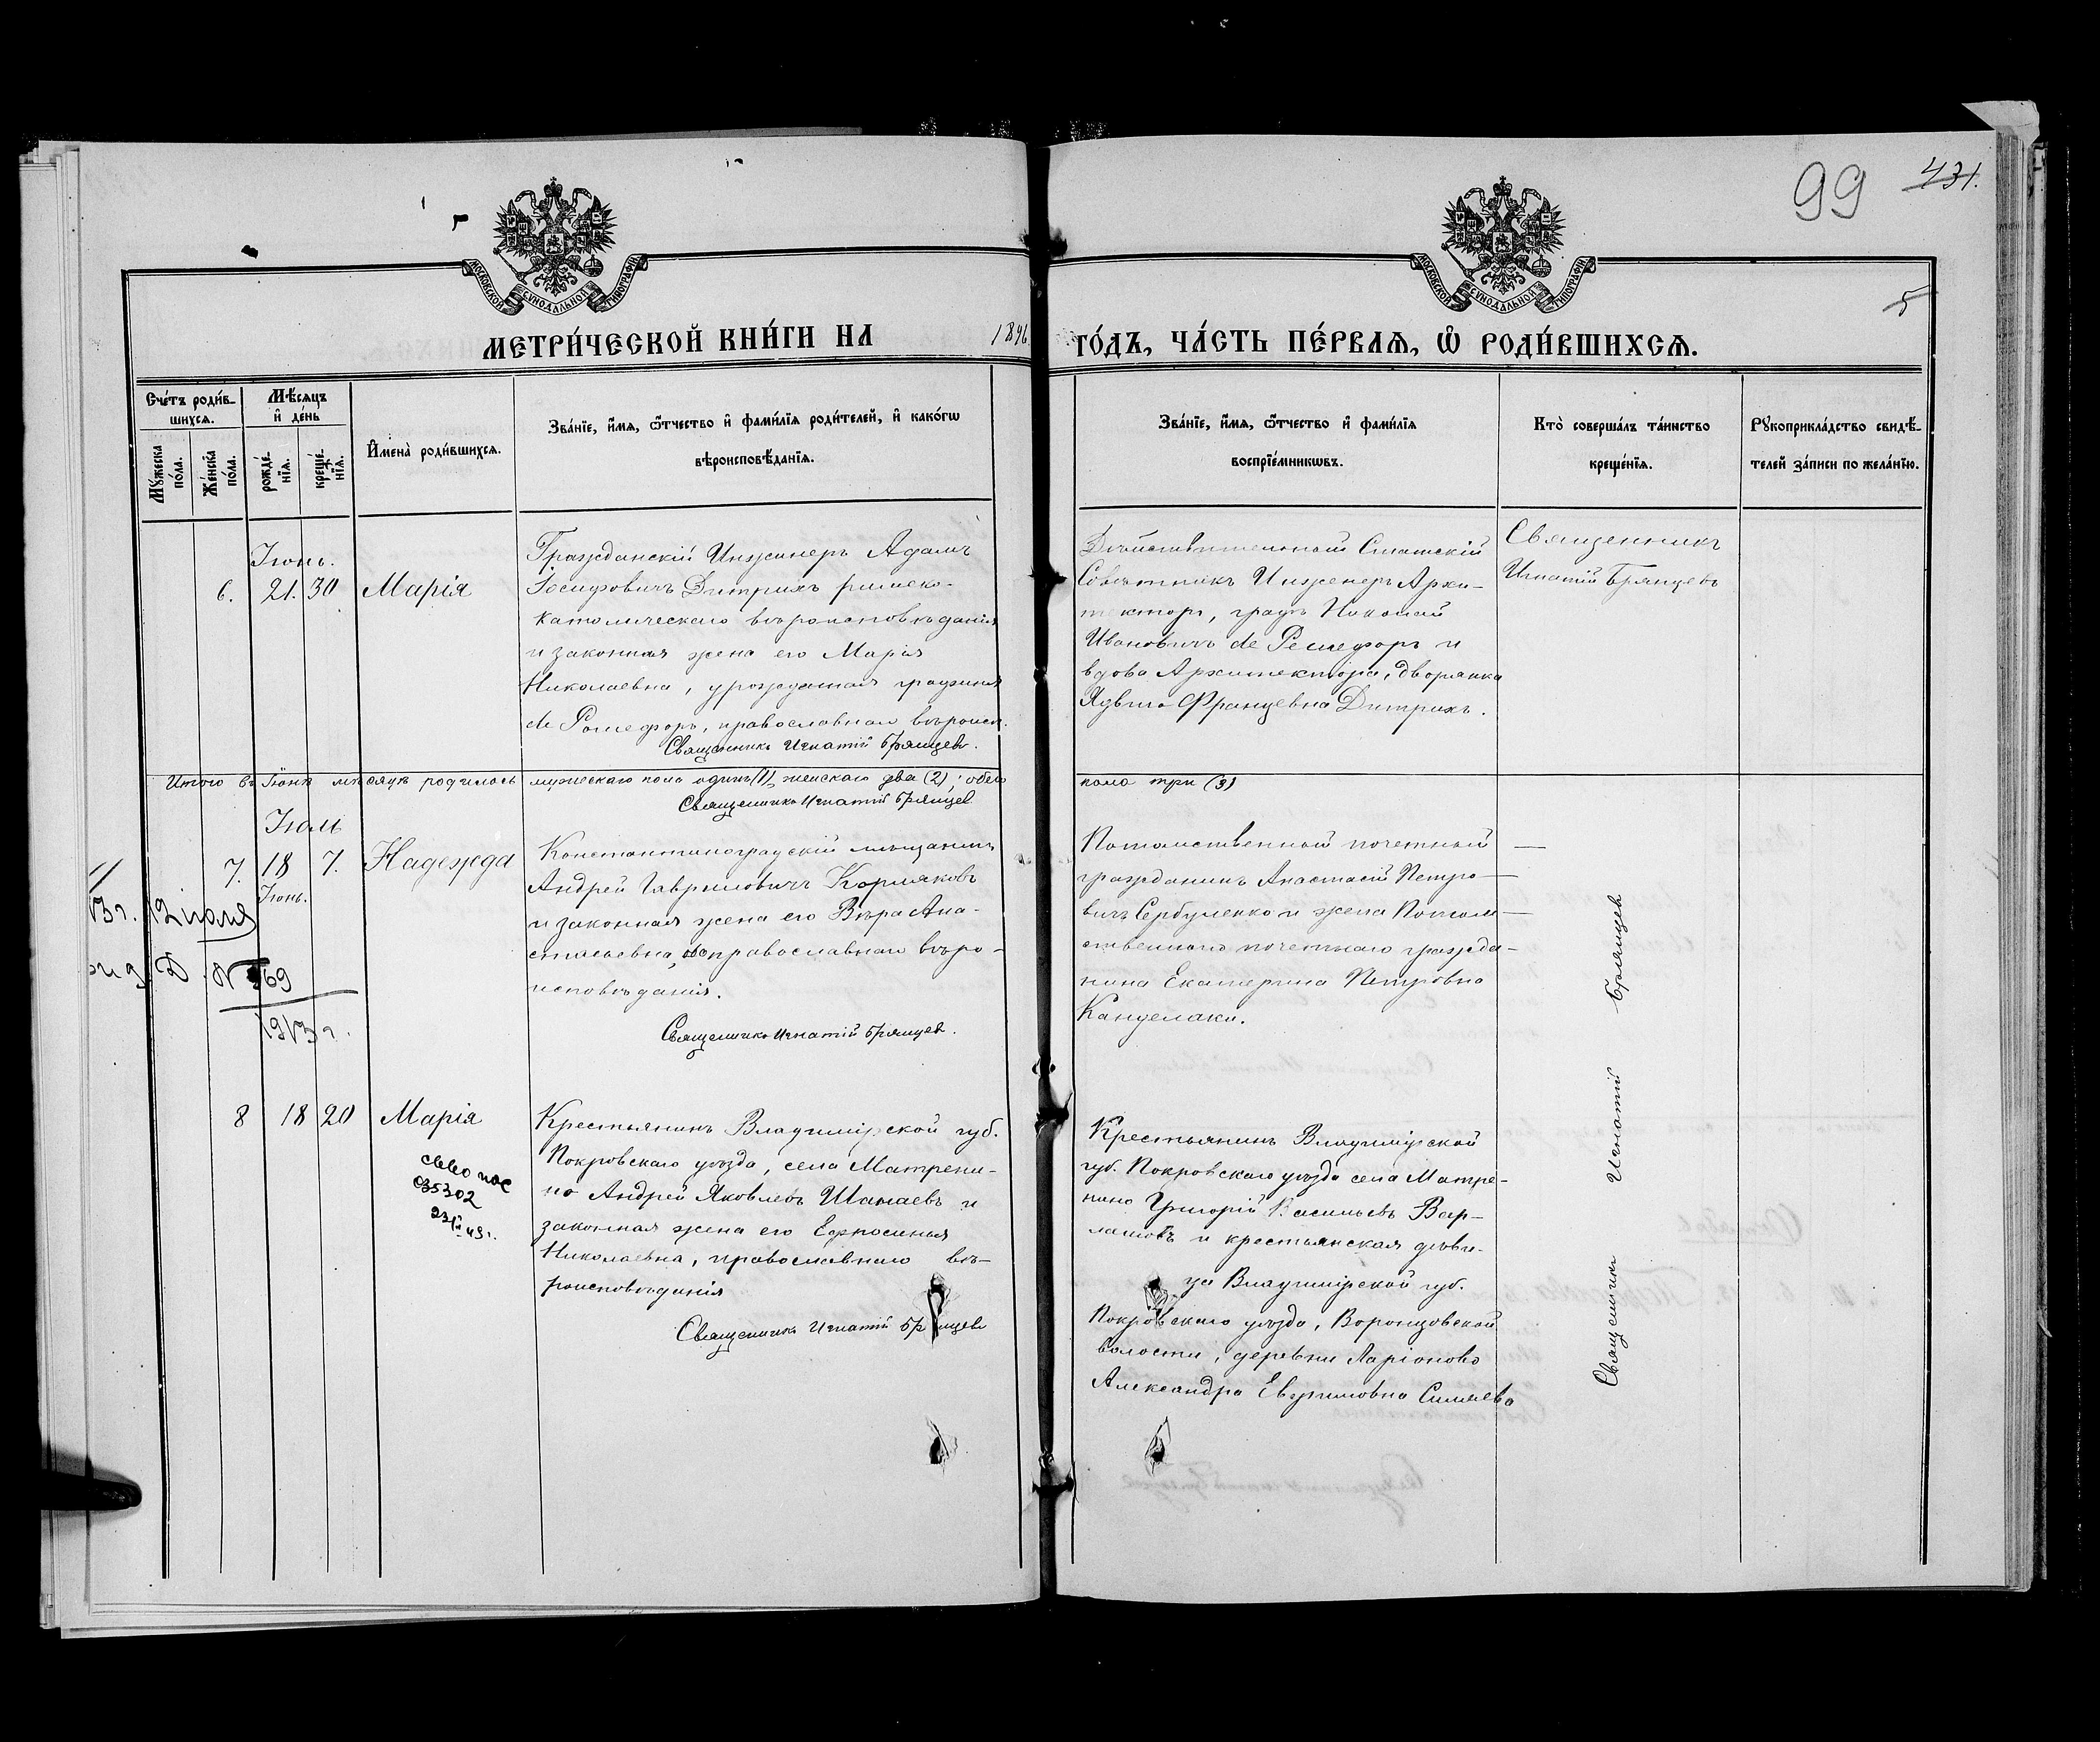 99 431.
5
МОСКОВСКОЙ СѴНОДАЛЬНОЙ ТИПОГРАФІИ
МОСКОВСКОЙ СѴНОДАЛЬНОЙ ТИПОГРАФІИ
МЕТРИ́ЧЕСКОЙ КНИ́ГИ НА 1896 ГО́ДЪ, ЧА́СТЬ ПЕ́РВАѦ, Ѡ҆ РОДИ́ВШИХСѦ.
Сче́тъ роди́в-
шихсѧ.
Мꙋ́жеска по́ла.
Же́нска по́ла.
Мѣ́сѧцъ
и҆ де́нь
рожде́-
нїѧ.
креще́-
нїѧ.
И҆мена̀ роди́вшихсѧ.
Зва́нїе, и҆́мѧ, ѻ҆́тчество и҆ фами́лїѧ роди́телей, и҆ како́гѡ
вѣроисповѣ́данїѧ.
Зва́нїе, и҆́мѧ, ѻ҆́тчество и҆ фами́лїѧ
воспрїе́мникѡвъ.
Кто̀ соверша́лъ та́инство
креще́нїѧ.
Рꙋкоприкла́дство свидѣ́-
телей за́писи по жела́нїю.
Іюнь.
6. 21. 30 Марія
Гражданскій Инженеръ Адамъ
Іосифовичъ Дитрихъ римско-
католическаго вѣроисповѣданія
и законная жена его Марія
Николаевна, урожденная графиня
de Рошефоръ, православнаго вѣроисп.
Священникъ Игнатій Брянцевъ.
Дѣйствительный Статскій
Совѣтникъ Инженеръ Архи-
текторъ, графъ Николай
Ивановичъ de Рошефоръ и
вдова Архитектора, дворянка
Ядвига Францевна Дитрихъ.
Священникъ
Игнатій Брянцевъ
Итого въ Іюнѣ мѣсяцѣ родилось мужескаго пола одинъ (1), женскаго два (2); обего пола три (3)
Священникъ Игнатій Брянцевъ
Іюль
7. 18 7. Надежда
Іюнь.
Константиноградскій мѣщанинъ
Андрей Гавриловичъ Корляковъ
и законная жена его Вѣра Ана-
стасьевна, православнаго вѣро-
исповѣданія.
Священникъ Игнатій Брянцевъ.
Потомственный почетный
гражданинъ Анастасій Петро-
вичъ Сербуленко и жена Потом-
ственнаго почетнаго гражда-
нина Екатерина Петровна
Канделаки.
13 г. 12 июля
Д. № 569
1913 г.
8 18 20 Марія
Крестьянинъ Владимірской губ.
Покровскаго уѣзда, села Матрени-
но Андрей Яковлевъ Шалаевъ и
законная жена его Ефросинья
Николаевна, православнаго вѣ-
роисповѣданія
Священникъ Игнатій Брянцевъ
035302
23 IV 43 г.
Крестьянинъ Владимірской
губ. Покровскаго уѣзда села Матре-
нино Григорій Васильевъ Вар-
ламовъ и крестьянская дѣви-
ца Владимірской губ.
Покровскаго уѣзда, Воронцовской
волости, деревни Ларіоново
Александра Евфимовна Силаева
Священникъ Игнатій Брянцевъ